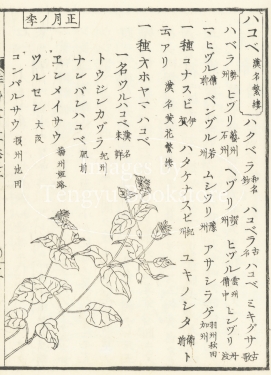 正月ノ季
ハコベ 漢名繁縷
ハクベラ 和名鈔 ハコベラ 古名 ハコベ ミキグサ 古歌
ハベラ 勢州 ヒヅリ 石州 ヘヅリ 讃州 ヒヅル 雲州 備中 ヒンヅリ 丹波
ヒヅル 備前 ベンヅル 若州 ムシツリ 薩州 アサシラゲ 羽州秋田 加州
一種 コナスビ 伊賀 ハタケナスビ 紀州 ユキノシタ
云アリ 漢名黄花繁縷
一種 オホヤマハコベ
一名ツルハコベ 漢名未詳
トウジンカヅラ 紀州
ナンバンハコベ 肥前
エンメイサウ
ツルセン 大坂
コンバルサウ 摂州池田